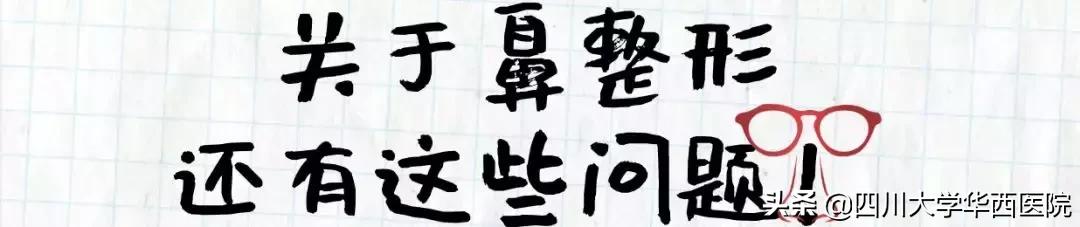 关于鼻整形
还有这些问题！
头条 @四川大学华西医院